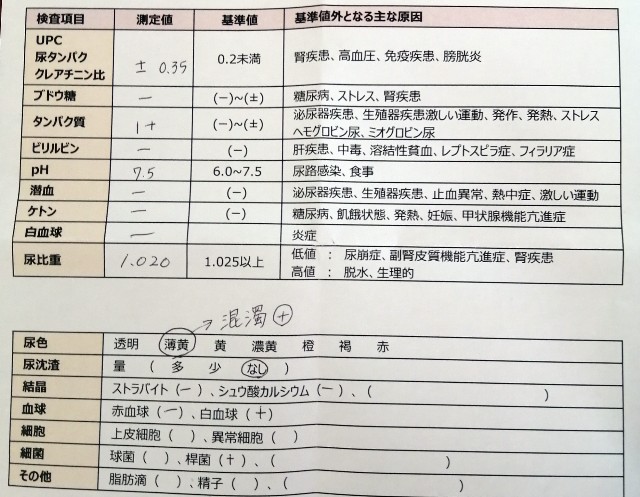 検査項目 測定値 基準値 基準値外となる主な原因
UPC
尿タンパク
クレアチニン比 ± 0.35 0.2未満 腎疾患、高血圧、免疫疾患、膀胱炎
ブドウ糖 － (－)~(±) 糖尿病、ストレス、腎疾患
タンパク質 1+ (－)~(±) 泌尿器疾患、生殖器疾患激しい運動、発作、発熱、ストレス
ヘモグロビン尿、ミオグロビン尿
ビリルビン － (－) 肝疾患、中毒、溶結性貧血、レプトスピラ症、フィラリア症
pH 7.5 6.0~7.5 尿路感染、食事
潜血 － (－) 泌尿器疾患、生殖器疾患、止血異常、熱中症、激しい運動
ケトン － (－) 糖尿病、飢餓状態、発熱、妊娠、甲状腺機能亢進症
白血球 － 炎症
尿比重 1.020 1.025以上 低値 ： 尿崩症、副腎皮質機能亢進症、腎疾患
高値 ： 脱水、生理的
→ 混濁 +
尿色 透明 薄黄 黄 濃黄 橙 褐 赤
尿沈渣 量 ( 多 少 なし )
結晶 ストラバイト (－)、シュウ酸カルシウム (－)、( )
血球 赤血球 (－)、白血球 (+)
細胞 上皮細胞 ( )、異常細胞 ( )
細菌 球菌 ( )、桿菌 (+)、( )
その他 脂肪滴 ( )、精子 ( )、( )